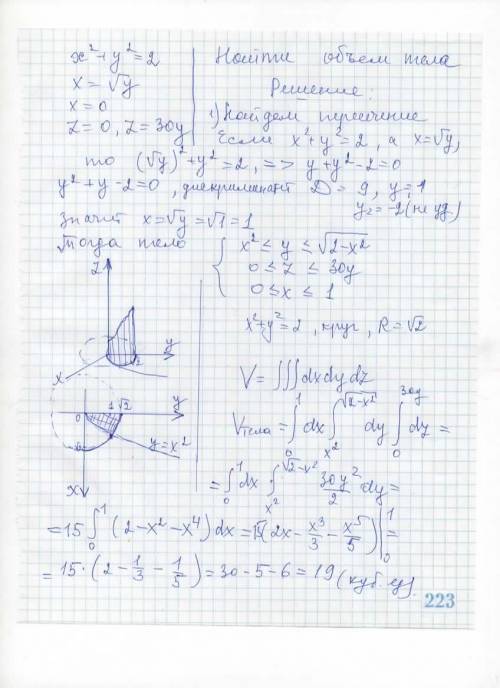 x² + y² = 2
x = √y
x = 0
z = 0, z = 30y
Найти объем тела
Решение:
1) Найдем пересечение
Если x² + y² = 2, а x = √y,
то (√y)² + y² = 2, => y + y² - 2 = 0
y² + y - 2 = 0, дискриминант D = 9, y = 1
y₂ = -2 (не уд.)
значит x = √y = √1 = 1
Тогда тело { x² ≤ y ≤ √2-x²
0 ≤ z ≤ 30y
0 ≤ x ≤ 1
x² + y² = 2, круг, R = √2
z
y
x
√2
V = ∫∫∫ dx dy dz
0 1 √2 y
y = x²
x
Vтела = ∫₀¹ dx ∫_{x²}^{√2-x²} dy ∫₀^{30y} dz =
= ∫₀¹ dx · ∫_{x²}^{√2-x²} 30y²/2 dy =
= 15 ∫₀¹ (2 - x² - x⁴) dx = 15(2x - x³/3 - x⁵/5) |₀¹ =
= 15 · (2 - 1/3 - 1/5) = 30 - 5 - 6 = 19 (куб. ед).
223